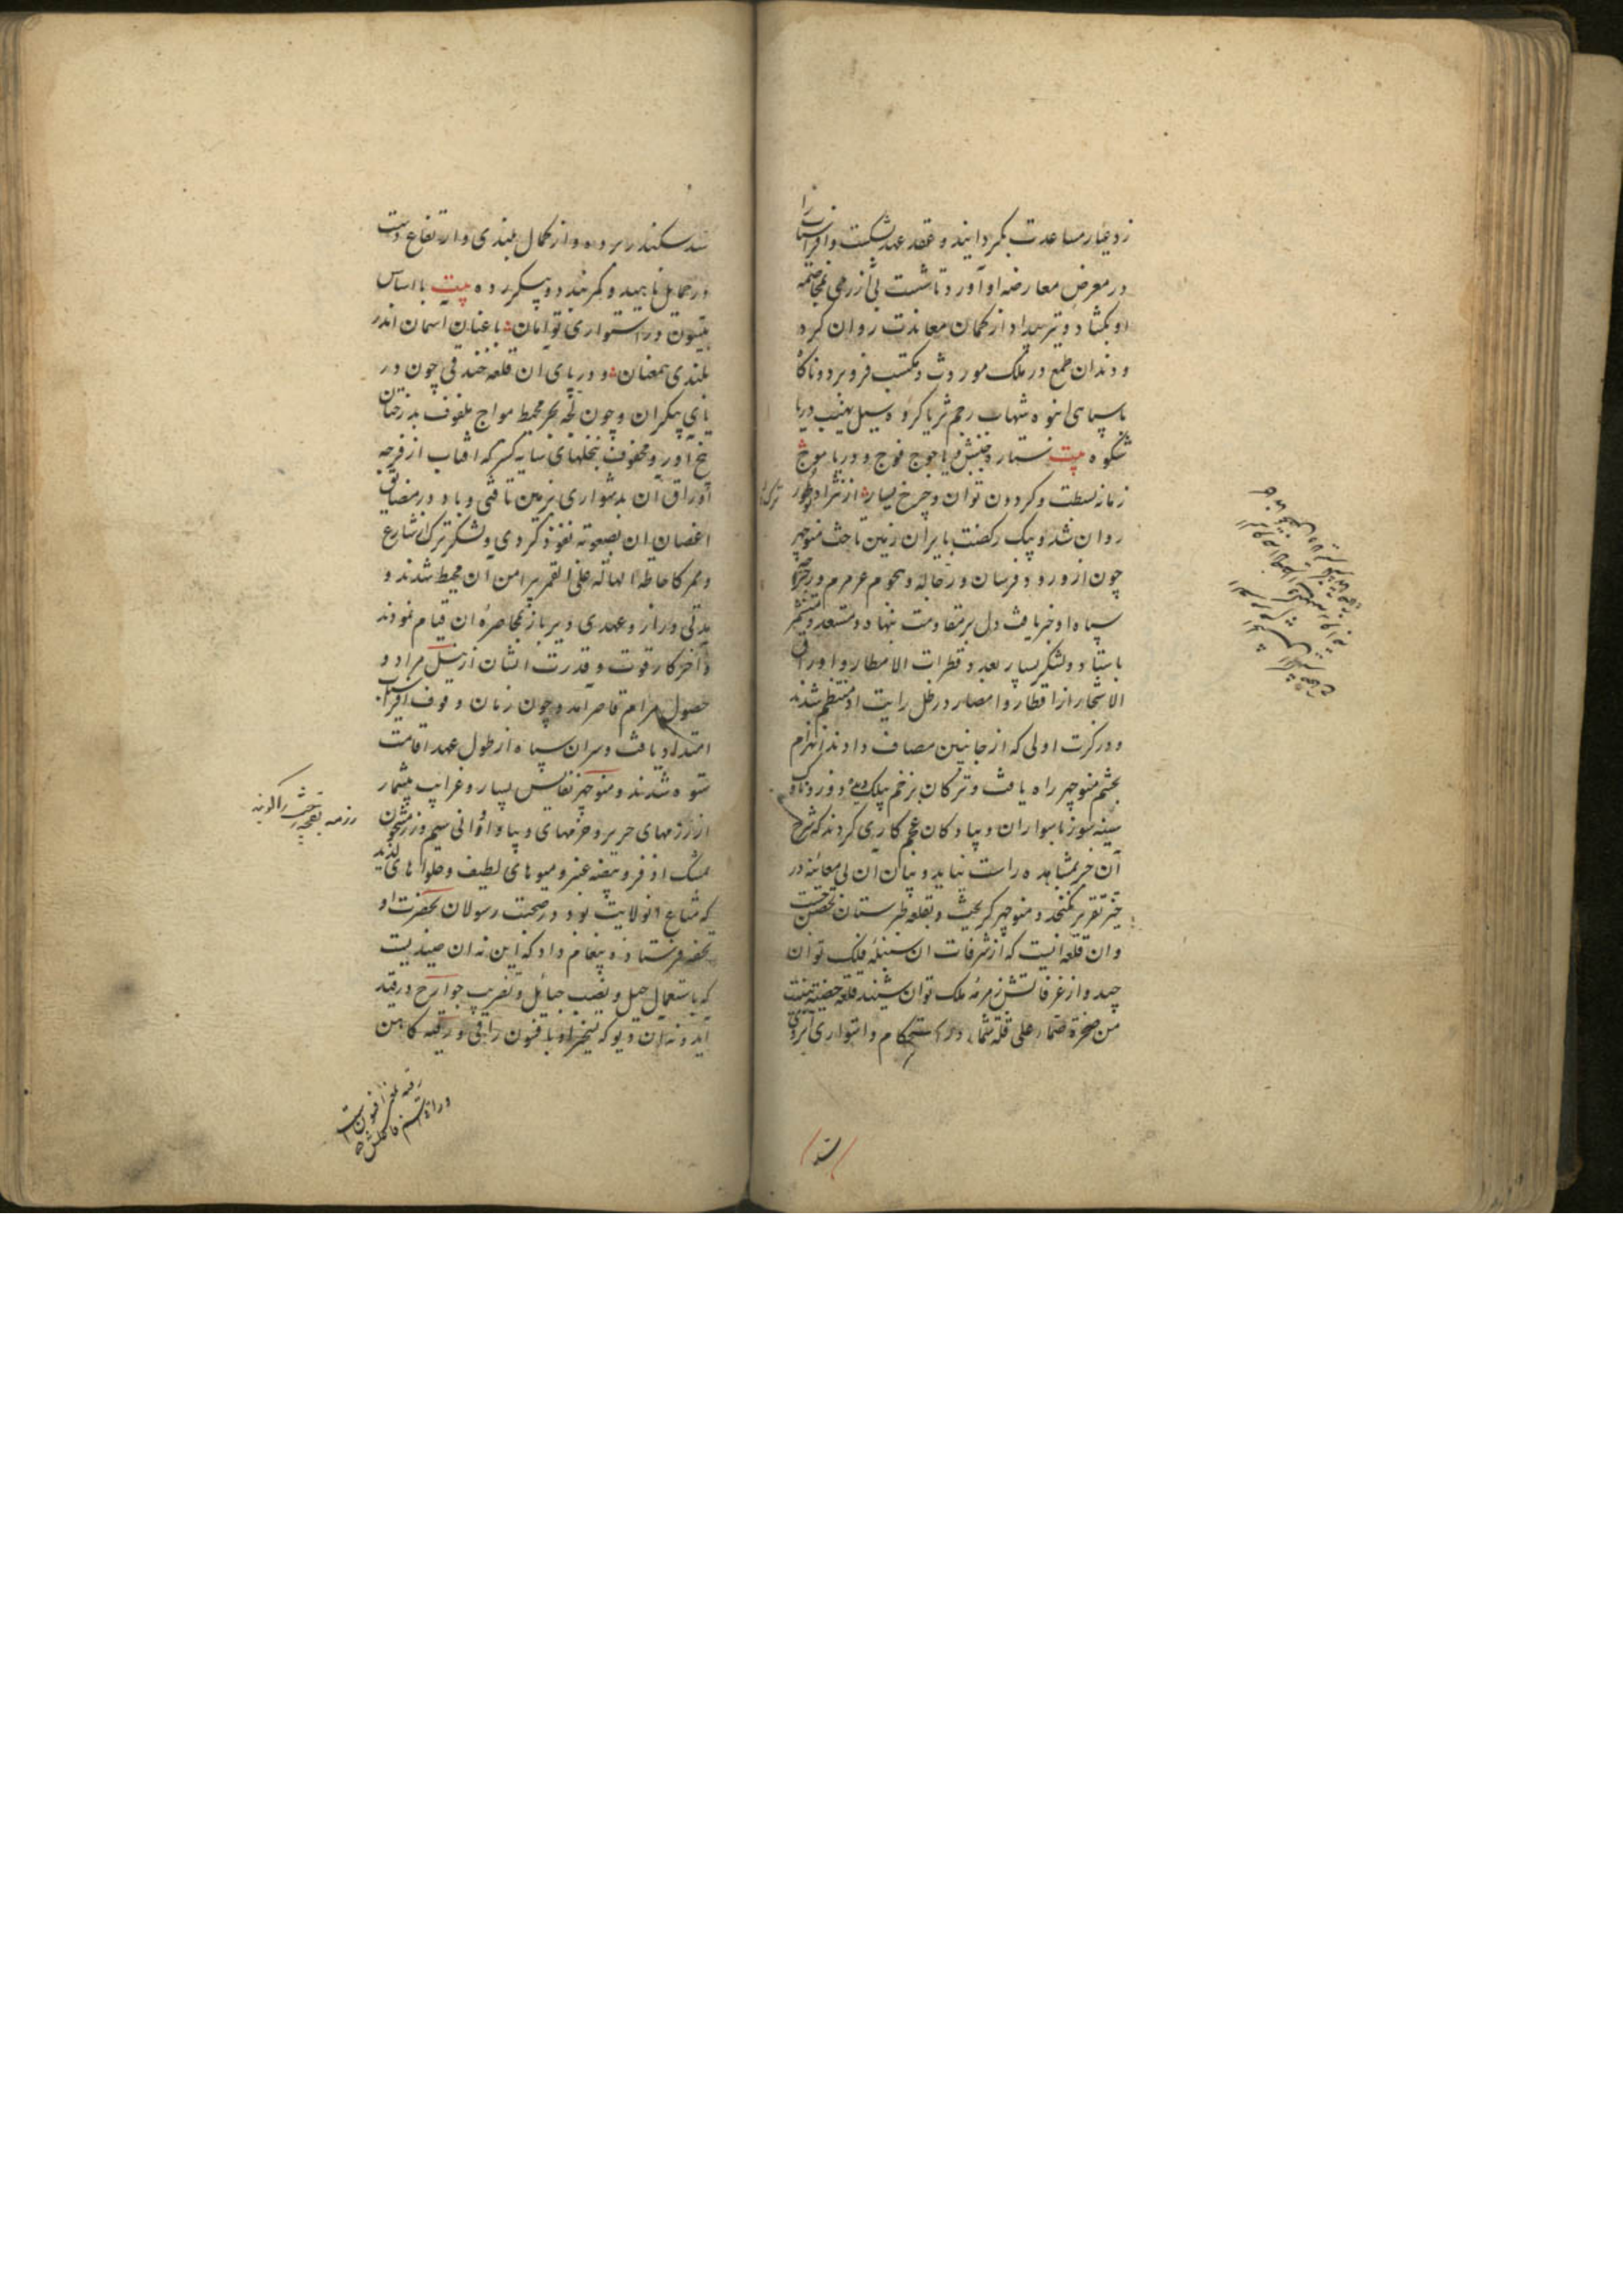 زد عیار مساعدت بگردانید و عقد عهد بشکست و افراسیاب را
در معرض معارضه او آورد تا شست بی آزرمی بمخاصمه
او بگشاد و تیر بیداد از کمان معاندت روان کرد
و دندان طمع در ملک موروث و مکتسب فرو برد و ناگاه
با سپاهی انبوه شهاب رجم ثریا گروه سیل نهیب دریا
شکوه بیت ستاره جنبش و یاجوج فوج و دریا موج
زمانه بسطت و گردون توان و چرخ یسار از نژاد
روان شد و پیک رکضت بایران زمین تاخت منوچهر
چون از ورود فرسان و رجاله و هجوم عرمرم
سپاه او خبر یافت دل بر مقاومت نهاد و مستعد و متشمر
بایستاد و لشکر بسیار بعدد قطرات الامطار و اوراق
الاشجار از اقطار و امصار در ظل رایت او منتظم شدند
و در کرت اولی که از جانبین مصاف دادند انهزام
بحشم منوچهر راه یافت و ترکان بزخم بیلک دیده دوز و ناوک
سینه سوز با سواران و پیادکان عجم کاری کردند که شرح
آن جز بمشاهده راست نیاید و بیان آن بی معاینه در
حیز تقریر نگنجد و منوچهر گریخت و بقلعه طبرستان تحصن جست
و آن قلعه ایست که از شرفات آن سنبله فلک توان
چید و از غرفاتش زمزمه ملک توان شنید قلعه حصینه بنیت
من صخرة صماء علی قلة شماء در استحکام و استواری آبروی
سد سکندر برده و از کمال بلندی و ارتفاع دست
در حمایل ناهید و کمربند دو پیکر زده بیت با اساس
بیستون در استواری توامان با عنان آسمان اندر
بلندی همعنان و در پای آن قلعه خندقی چون در
یای بیکران و چون لجه بحر محیط مواج ملفوف بدرختان
بیخ آور و محفوف بنخلهای سایه گستر که افتاب از فرجه
اوراق آن بدشواری بر زمین تافتی و باد در مضایق
اغصان آن بصعوبه نفوذ کردی و لشکر ترک از شارع
و ممر کاحاطة الهالة علی القمر پیرامن آن محیط شدند و
مدتی دراز و عهدی دیرباز بمحاصره آن قیام نمودند
و آخر کار قوت و قدرت ایشان از نیل مراد و
حصول مرام قاصر آمد و چون زمان وقوف افراسیاب
امتداد یافت و سران سپاه از طول عهد اقامت
ستوه شدند و منوچهر نفایس بسیار و غرایب بیشمار
از رزمهای حریر و خزمهای دیبا و اوانی سیم و زر مشحون
بمشک اذفر و بیضه عنبر و میوهای لطیف و حلواهای لذیذ
که متاع آن ولایت بود در صحبت رسولان بحضرت او
تحفه فرستاد و پیغام داد که این نه آن صیدیست
که باستعمال حیل و نصب حبایل و تضریب جوارح در قید
آید و نه آن دیو که تسخیر او بافسون راقی و رقیه کاهن
رزمه بقچه رخت را گویند
رقیه افسون است